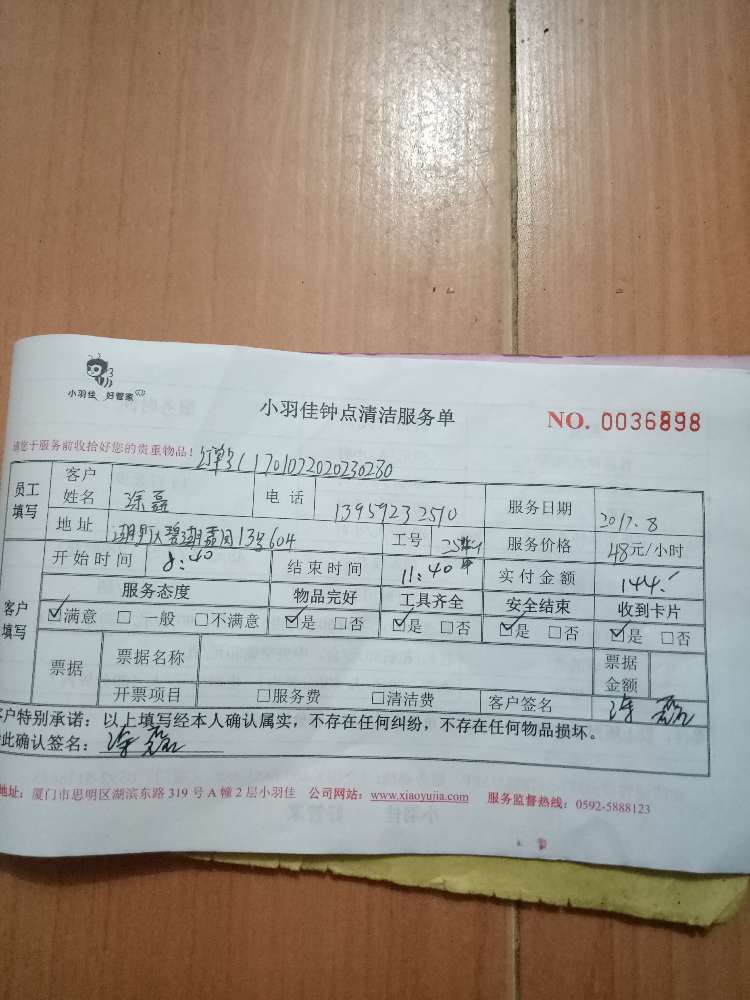 小羽佳 好管家
小羽佳钟点清洁服务单
NO. 0036898
请您于服务前收拾好您的贵重物品!
员工填写
客户姓名
电话 13959232510
服务日期 2017.8
地址 13号604
工号
服务价格 48元/小时
客户填写
开始时间 8:40
结束时间 11:40
实付金额 144.
服务态度 物品完好 工具齐全 安全结束 收到卡片
☑满意 □一般 □不满意 ☑是 □否 ☑是 □否 ☑是 □否 ☑是 □否
票据
票据名称
票据金额
开票项目 □服务费 □清洁费 客户签名
客户特别承诺:以上填写经本人确认属实,不存在任何纠纷,不存在任何物品损坏。
此确认签名:
地址:厦门市思明区湖滨东路 319 号 A 幢 2 层小羽佳 公司网站:www.xiaoyujia.com 服务监督热线:0592-5888123